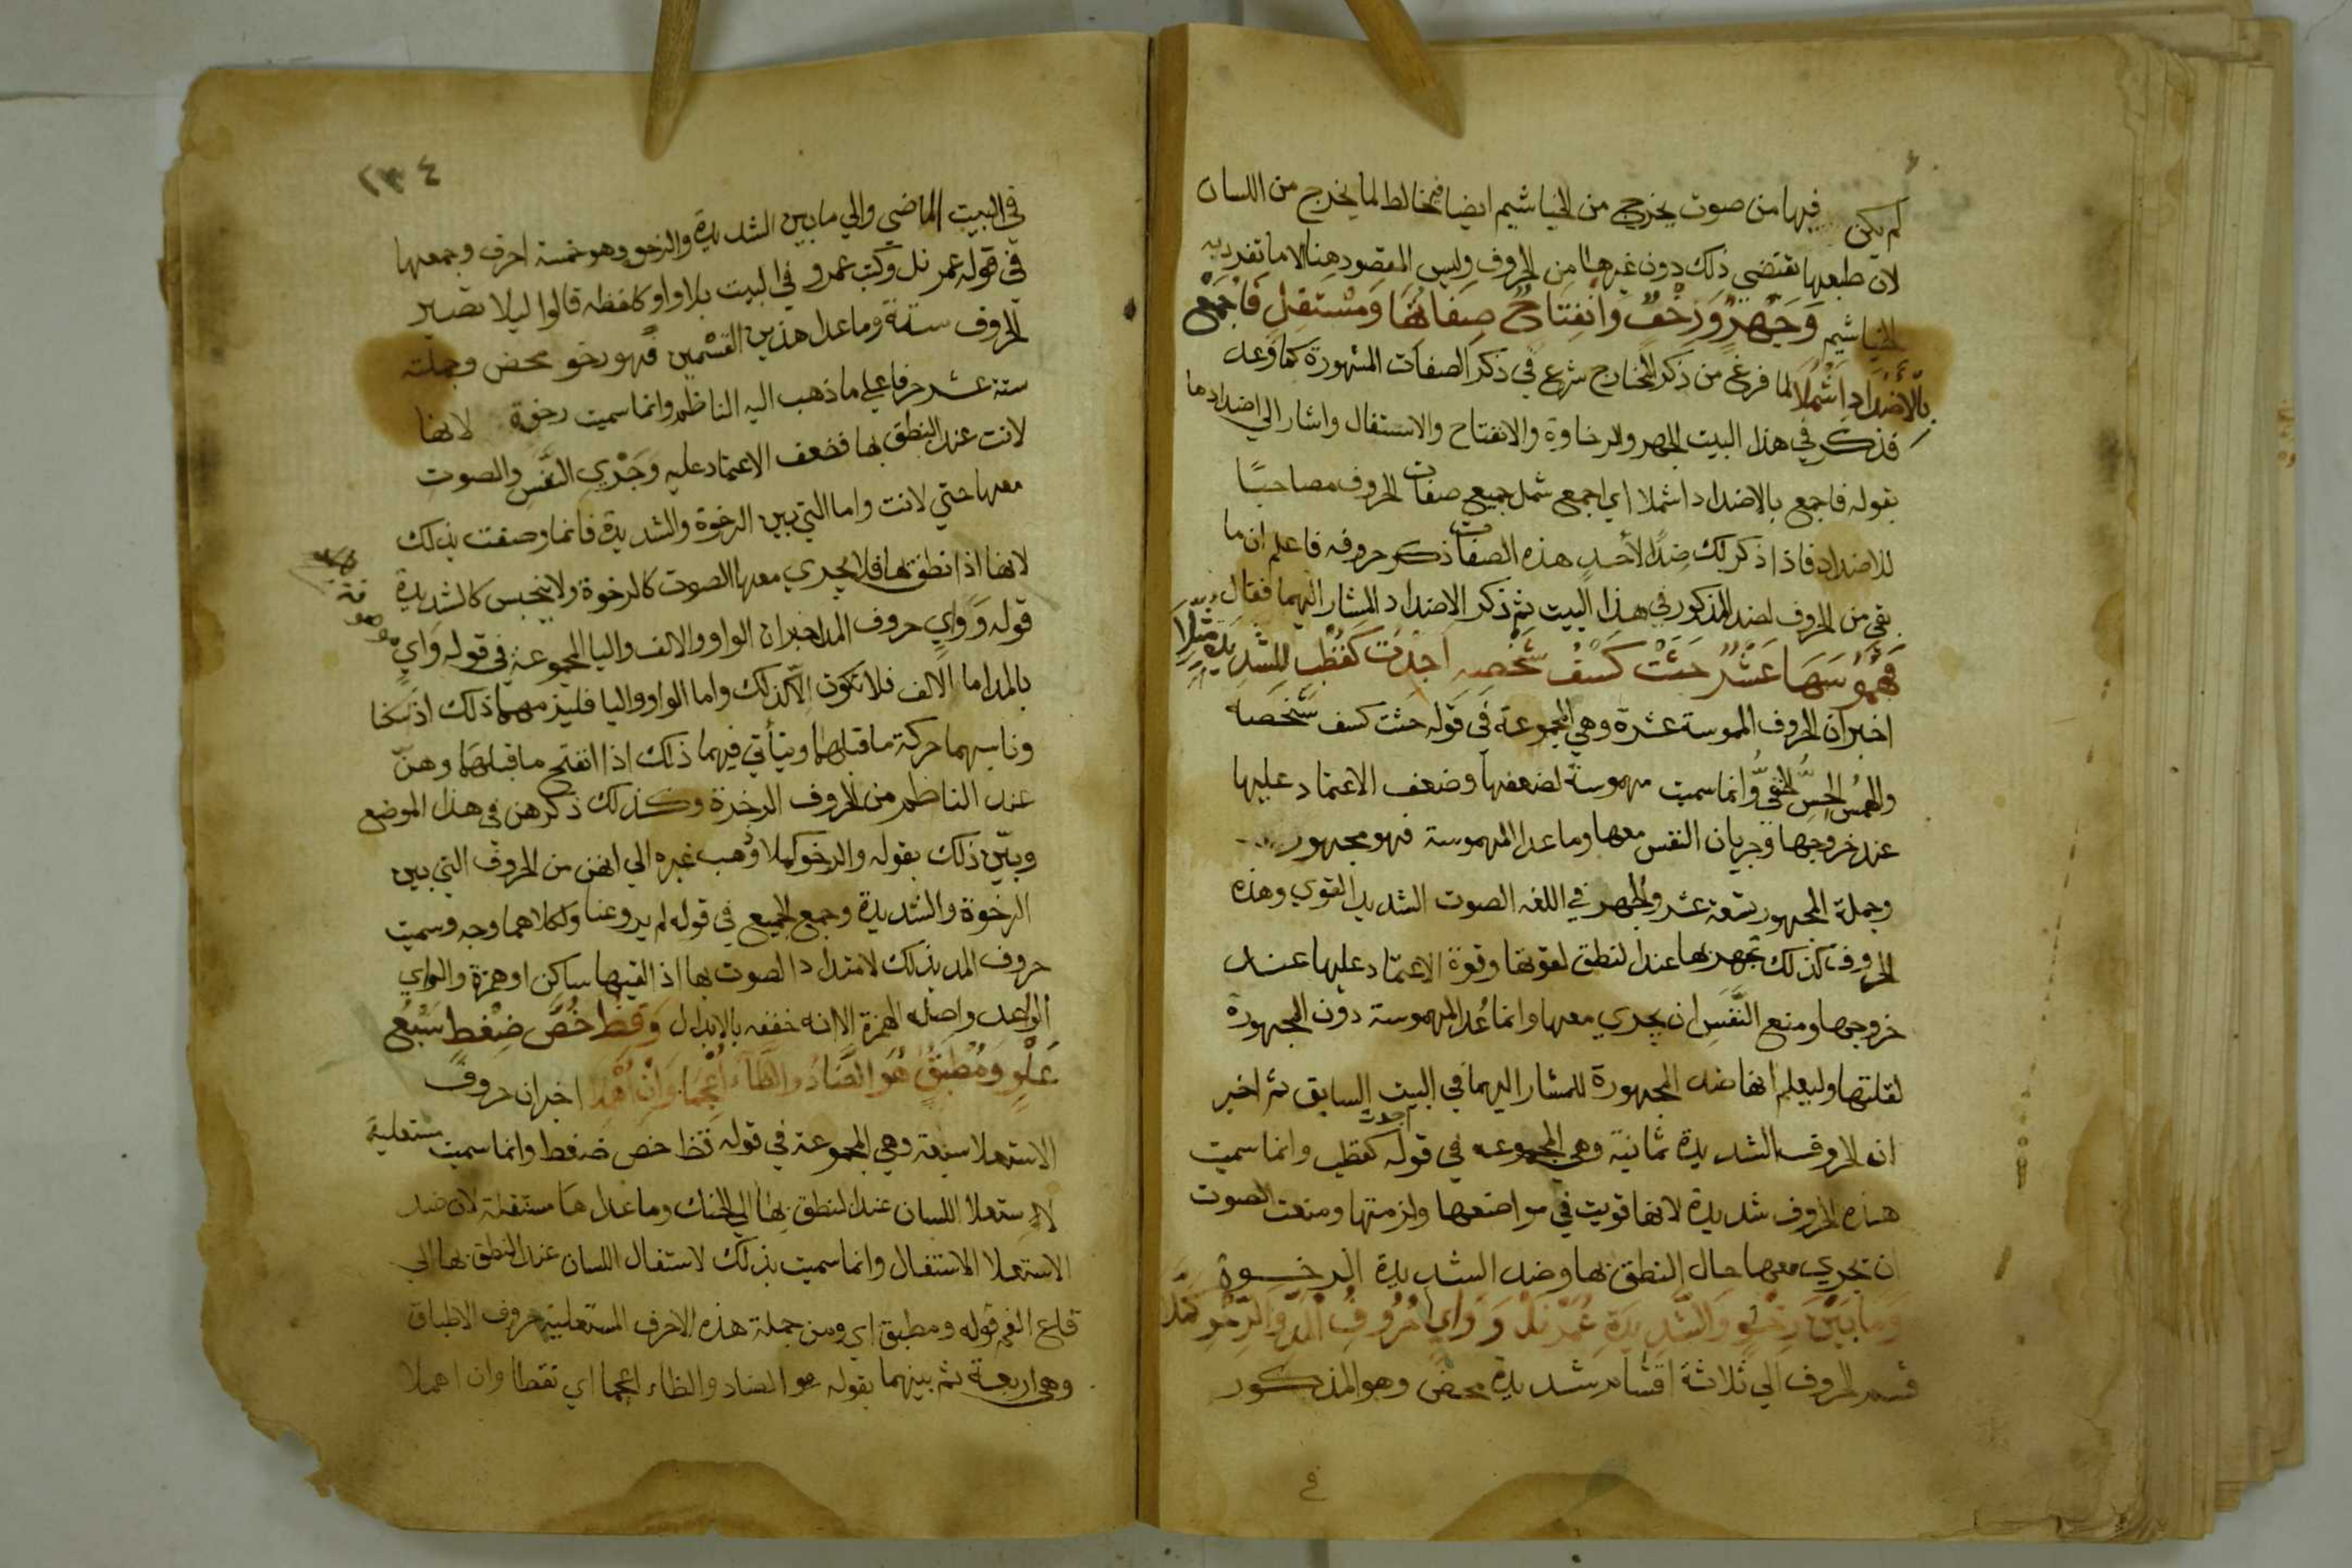 لم يكن فيها من صوت يخرج من الخياشيم ايضا فيخالط لما يخرج من اللسان
لان طبعها تقتضي ذلك دون غيرها من الحروف وليس المقصود هنا الا ما تفرد به
الخياشيم وَجَهْرٌ وَرَخْوٌ وَانْفِتَاحٌ صِفَاتُهَا وَمُسْتَفِلٌ فَاجْمَعْ
بِالْأَضْدَادِ أَشْمُلَا لما فرغ من ذكر المخارج شرع في ذكر الصفات المشهورة كما وعد
فذكر في هذا البيت الجهر والرخاوة والانفتاح والاستفال واشار الي اضدادها
بقوله فاجمع بالاضداد اشملا اي اجمع شمل جميع صفات الحروف مصاحبًا
للاضداد فاذا ذكر لك ضدًا لأحد هذه الصفات ذكر حروفه فاعلم ان ما
بقي من الحروف لضد المذكور في هذا البيت ثم ذكر الاضداد المشار اليهما فقال
فَمَهْمُوسُهَا عَشْرٌ حَثَتْ كِسْفَ شَخْصِهِ اَجَدَّتْ كَقُطْبٍ لِلشَّدِيدَةِ مُثِّلَا
اخبر ان الحروف المموسة عشرة وهي المجموعة في قوله حثت كسف شخصه
والهمس الحِسُّ الخفيُّ وانما سميت مهموسة لضعفها وضعف الاعتماد عليها
عند خروجها وجريان النفس معها وما عدا المهموسة فهو مجهور
وجملة المجهور تسعة عشر والجهر في اللغه الصوت الشديد القوي وهذه
الحروف كذلك تجهر بها عند النطق لقوتها وقوة الاعتماد عليها عند
خروجها ومنع النَّفَس ان يجري معها وانما عُد المهموسة دون المجهورة
لقلتها وليعلم انها ضد المجهورة للمشار اليهما في البيت السابق ثم اخبر
ان الحروف الشديدة ثمانية وهي المجموعه في قوله اجدت كقطب وانما سميت
هذه الحروف شديدة لانها قويت في مواضعها ولزمتها ومنعت الصوت
ان يجري معها حال النطق بها وضد الشديدة الرخوة
وَمَا بَيْنَ رَخْوٍ وَالشَّدِيدَةِ عَمْرُ نَلْ وَ وَايٍ حُرُوفُ الْمَدِّ وَالرَّخْوِ كَمَّلَا
قسم الحروف الي ثلاثة اقسام شديدة محض وهو المذكور
في
٢٣٤
في البيت الماضي والي ما بين الشديدة والرخو وهو خمسة احرف وجمعها
في قوله عمر نل وكتب عمرو في البيت بلا واو كلفظه قالوا ليلا تصير
الحروف ستة وما عدا هذين القسمين فهو رخو محض وجملته
ستة عشر حرفا علي ما ذهب اليه الناظم وانما سميت رخوة لانها
لانت عند النطق بها فضعف الاعتماد عليه وَجَرْي النَّفَس والصوت
معها حتي لانت واما التي بين الرخوة والشديدة فانما وصفت بذلك
لانها اذا نطق بها فلا يجري معها الصوت كالرخوة ولا ينحبس كالشديدة
قوله وَ وَايٍ حروف المد اخبر ان الواو والالف واليا المجموعة في قوله وَايٍ موصوفة
بالمد اما الالف فلا تكون الّا كذلك واما الواو واليا فليزمهما ذلك اذا سكنا
وناسبهما حركة ما قبلهما ويتأتي فيهما ذلك اذا انفتح ما قبلهما وهنّ
عند الناظم من الحروف الرخوة وكذلك ذكرهن في هذا الموضع
وبيّن ذلك بقوله والرخو كملا وذهب غيره الي انهن من الحروف التي بين
الرخوة والشديدة وجمع الجميع في قوله لم يروعنا ولكلاهما وجه وسميت
حروف المد بذلك لامتداد الصوت بها اذا لقيها ساكن او همزة والواي
الواعد واصله الهمزة الا انه خففه بالابدال وَقِظْ خُصَّ ضَغْطٍ سَبْعُ
عُلْوٍ وَمُطْبَقٌ هُوَ الضَّادُ وَالظَّاءُ أُعْجِمَا وَانْ أُهْمِلَا اخبر ان حروف
الاستعلا سبعة وهي المجموعة في قوله قظ خص ضغط وانما سميت مستعلية
لاستعلا اللسان عند النطق بها الي الحنك وما عداها مستفلة لان ضد
الاستعلا الاستفال وانما سميت بذلك لاستفال اللسان عند النطق بها الي
قاع الفم قوله ومطبق اي ومن جملة هذه الاحرف المستعلية حروف الاطباق
وهي اربعة ثم بينهما بقوله هو الضاد والظاء اعجما اي نقطا وان اهملا